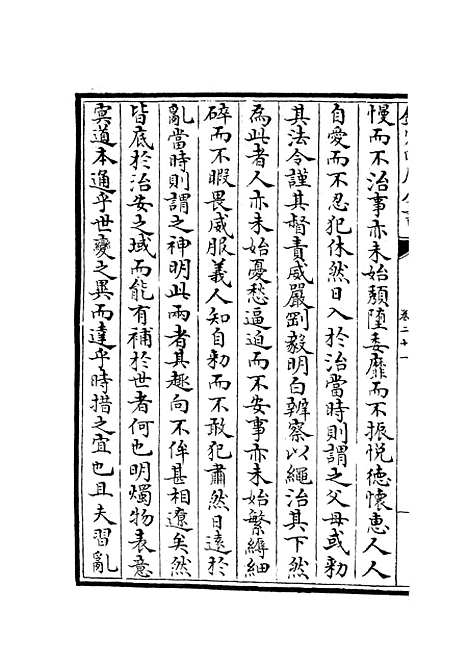 欽定四庫全書
卷二十一
慢而不治事亦未始頽墮委靡而不振悦徳懷恵人人
自愛而不忍犯休然日入於治當時則謂之父母或勅
其法令謹其督責威嚴剛毅明白辨察以繩治其下然
為此者人亦未始憂愁逼迫而不安事亦未始繁縟細
碎而不暇畏威服義人知自勅而不敢犯肅然日逺於
亂當時則謂之神明此兩者其趣向不侔甚相遼矣然
皆底於治安之域而能有補於世者何也明燭物表意
㝠道本通乎世變之異而達乎時措之宜也且夫習亂